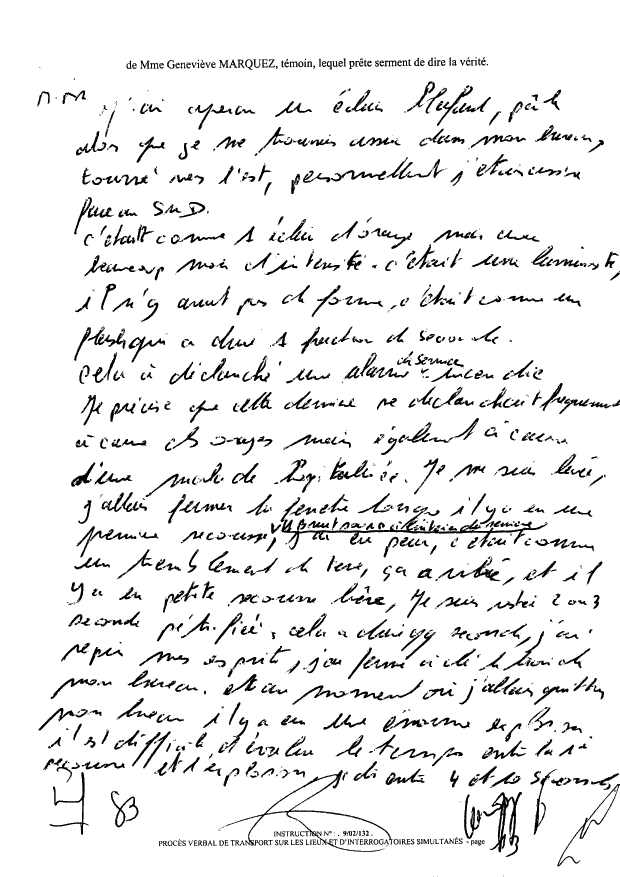 de Mme Geneviève MARQUEZ, témoin, lequel prête serment de dire la vérité.
j'ai aperçu un éclair
alors que je me trouvais assise dans mon bureau,
tourné vers l'est, personnellement j'étais assise
face au S.N.D.
c'était comme 1 éclair d'orage mais avec
beaucoup moins d'intensité. c'était une luminosité,
il n'y avait pas de forme, c'était comme un
flash qui a duré 1 fraction de seconde.
Cela a déclenché une alarme de service incendie
Je précise que cette dernière se déclenchait fréquemment
à cause des orages mais également à cause
d'une Je me suis levée,
j'allais fermer la fenêtre lorsque il y a eu une
première secousse, j'ai eu peur, c'était comme
un tremblement de terre, ça a vibré, et il
y a eu petite secousse Je suis restée 2 ou 3
seconde pétrifiée, cela a duré seconde, j'ai
repris mes esprits, j'ai fermé à clé le
mon bureau. et au moment où j'allais quitter
mon bureau il y a eu une énorme explosion
il est difficile d'évaluer le temps entre la 1e
secousse et l'explosion, je dis entre 4 et 10 secondes
83
INSTRUCTION N° : . 9/02/132 .
PROCÈS VERBAL DE TRANSPORT SUR LES LIEUX ET D'INTERROGATOIRES SIMULTANÉS - page